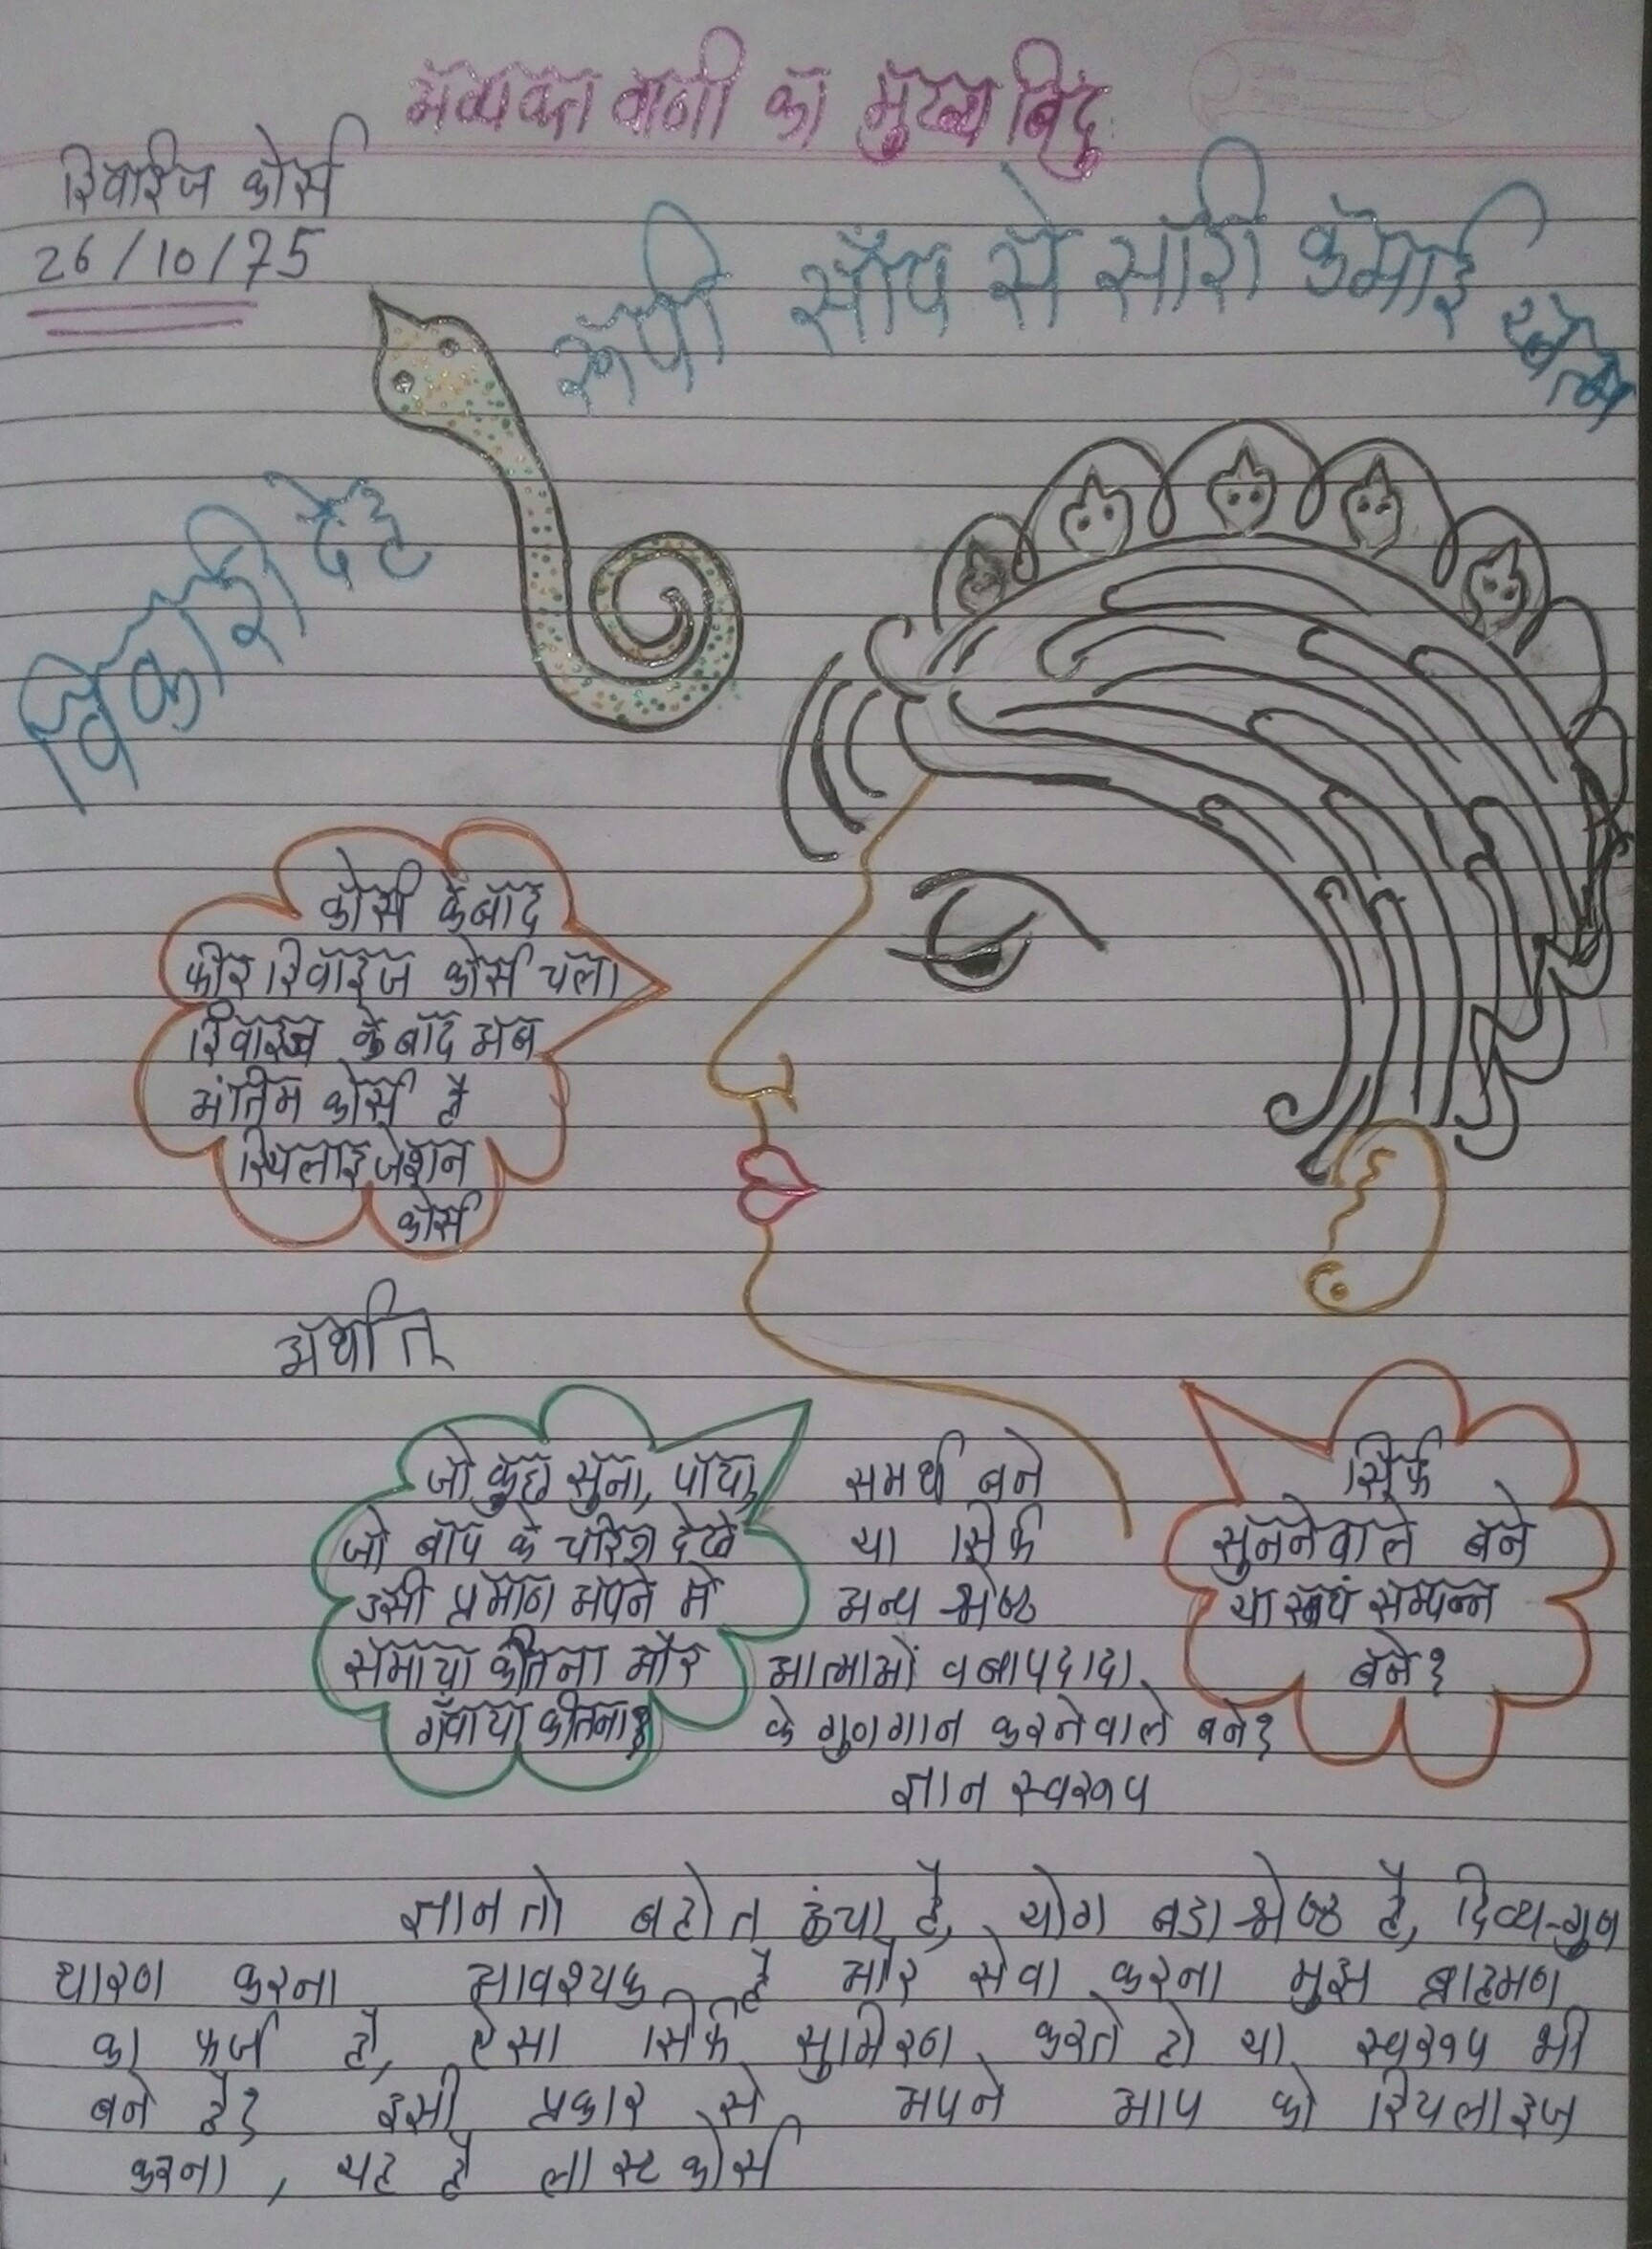 अव्यक्त वाणी का मुख्य बिंदु
रिवाईज कोर्स
26/10/75
विकारी देह
रूपी साँप से सारी कमाई खत्म
कोर्स के बाद
फीर रिवाइज कोर्स चला
रिवाइज के बाद अब
अंतिम कोर्स है
रियलाइजेशन
कोर्स
अर्थात्
जो कुछ सुना, पाया,
जो बाप के चरित्र देखे
उसी प्रमाण अपने मे
समाया कीतना और
गँवाया कीतना?
समर्थ बने
या सिर्फ
अन्य श्रेष्ठ
आत्माओं व बापदादा
के गुणगान करनेवाले बने?
ज्ञान स्वरूप
सिर्फ
सुननेवाले बने
या स्वयं सम्पन्न
बने?
ज्ञान तो बहोत ऊंचा है, योग बडा श्रेष्ठ है, दिव्य-गुण
धारण करना आवश्यक है और सेवा करना मुझ ब्राहमण
का फर्ज है, ऐसा सिर्फ सुमिरण करते हो या स्वरूप भी
बने है? इसी प्रकार से अपने आप को रियलाइज
करना, यह है लास्ट कोर्स